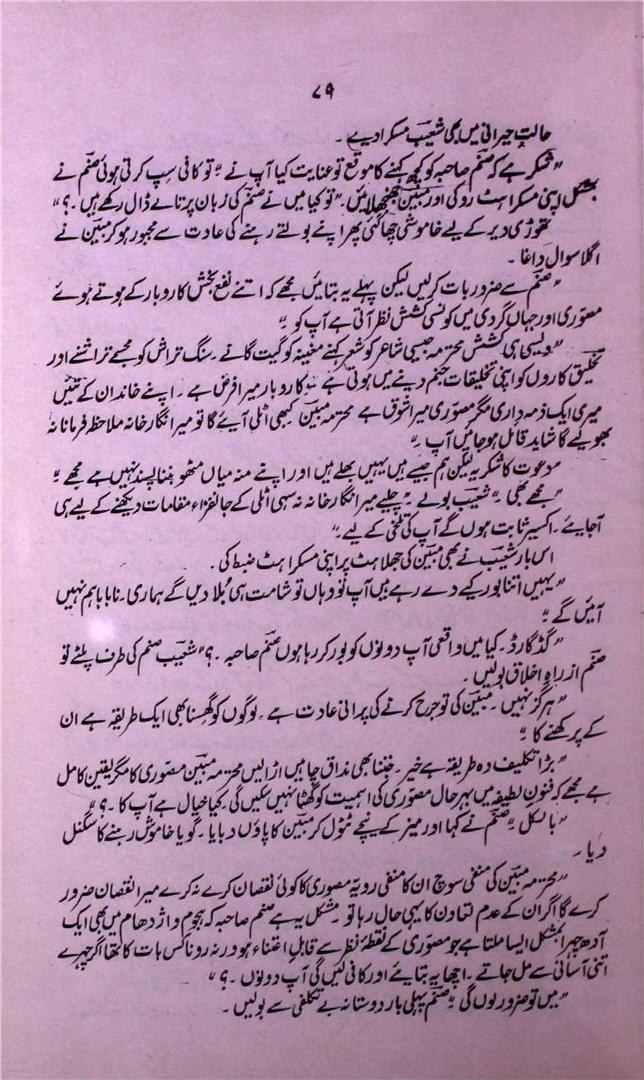 ۷۹
حالتِ حیرانی میں بھی شعیب مسکرا دیے۔
"شکر ہے کہ صنم صاحبہ کو کچھ کہنے کا موقع تو عنایت کیا آپ نے" تو کافی سپ کرتی ہوئی صنم نے
بمشکل اپنی مسکراہٹ روکی اور مبین جھنجھلائیں۔ "تو کیا میں نے صنم کی زبان پر تالے ڈال رکھے ہیں۔؟"
تھوڑی دیر کے لیے خاموشی چھا گئی پھر اپنے بولتے رہنے کی عادت سے مجبور ہو کر مبین نے
اگلا سوال داغا۔
"صنم سے ضرور بات کر لیں لیکن پہلے یہ بتائیں مجھے کہ اتنے نفع بخش کاروبار کے ہوتے ہوئے
مصوری اور جہاں گردی میں کونسی کشش نظر آتی ہے آپ کو۔"
"ویسی ہی کشش محترمہ جیسی شاعر کو شعر کہنے مغنیہ کو گیت گانے۔ سنگ تراش کو مجسمے تراشنے اور
تخلیق کاروں کو اپنی تخلیقات جنم دینے میں ہوتی ہے۔ کاروبار میرا فرض ہے۔ اپنے خاندان کے تئیں
میری ایک ذمہ داری مگر مصوری میرا شوق ہے محترمہ مبین کبھی اٹلی آئیے گا تو میرا نگار خانہ ملاحظہ فرمانا نہ
بھولیے گا شاید قائل ہو جائیں آپ۔"
"دعوت کا شکریہ لیکن ہم جیسے ہیں یہیں بھلے ہیں اور اپنے منہ میاں مٹھو بننا پسند نہیں ہے مجھے۔"
"مجھے بھی۔" شعیب بولے۔ "چلیے میرا نگار خانہ نہ سہی اٹلی کے جانفزاء مقامات دیکھنے کے لیے ہی
آجایئے۔ اکسیر ثابت ہوں گے آپ کی تلخی کے لیے۔"
اس بار شعیب نے بھی مبین کی جھلاہٹ پر اپنی مسکراہٹ ضبط کی۔
"یہیں اتنا بور کیے دے رہے ہیں آپ تو وہاں تو شامت ہی بُلا دیں گے ہماری۔ نا بابا ہم نہیں
آئیں گے۔"
"گڈ گارڈ۔ کیا میں واقعی آپ دونوں کو بور کر رہا ہوں صنم صاحبہ۔؟" شعیب صنم کی طرف پلٹے تو
صنم از راہِ اخلاق بولیں۔
"ہرگز نہیں۔ مبین کی تو جرح کرنے کی پرانی عادت ہے۔ لوگوں کو گھسنا بھی ایک طریقہ ہے ان
کے پرکھنے کا۔"
"بڑا تکلیف دہ طریقہ ہے خیر۔ جتنا بھی مذاق چاہیں اڑا لیں محترمہ مبین مصوری کا مگر یقین کامل
ہے مجھے کہ فنونِ لطیفہ میں بہرحال مصوری کی اہمیت کو گھٹا نہیں سکیں گی۔ کیا خیال ہے آپ کا۔؟"
"بالکل" صنم نے کہا اور میز کے نیچے ٹٹول کر مبین کا پاؤں دبایا۔ گویا خاموش رہنے کا سگنل
دیا۔
"محترمہ مبین کی منفی سوچ ان کا منفی رویہ مصوری کا کوئی نقصان کرے نہ کرے میرا نقصان ضرور
کرے گا اگر ان کے عدم تعاون کا یہی حال رہا تو۔ مشکل یہ ہے صنم صاحبہ کہ ہجوم و اژدھام میں بھی ایک
آدھ چہرا بمشکل ایسا ملتا ہے جو مصوری کے نقطۂ نظر سے قابلِ اغتناء ہو ورنہ رونا کس بات کا تھا اگر چہرے
اتنی آسانی سے مل جاتے۔ اچھا یہ بتایئے اور کافی لیں گی آپ دونوں۔؟"
"میں تو ضرور لوں گی" صنم پہلی بار دوستانہ بے تکلفی سے بولیں۔